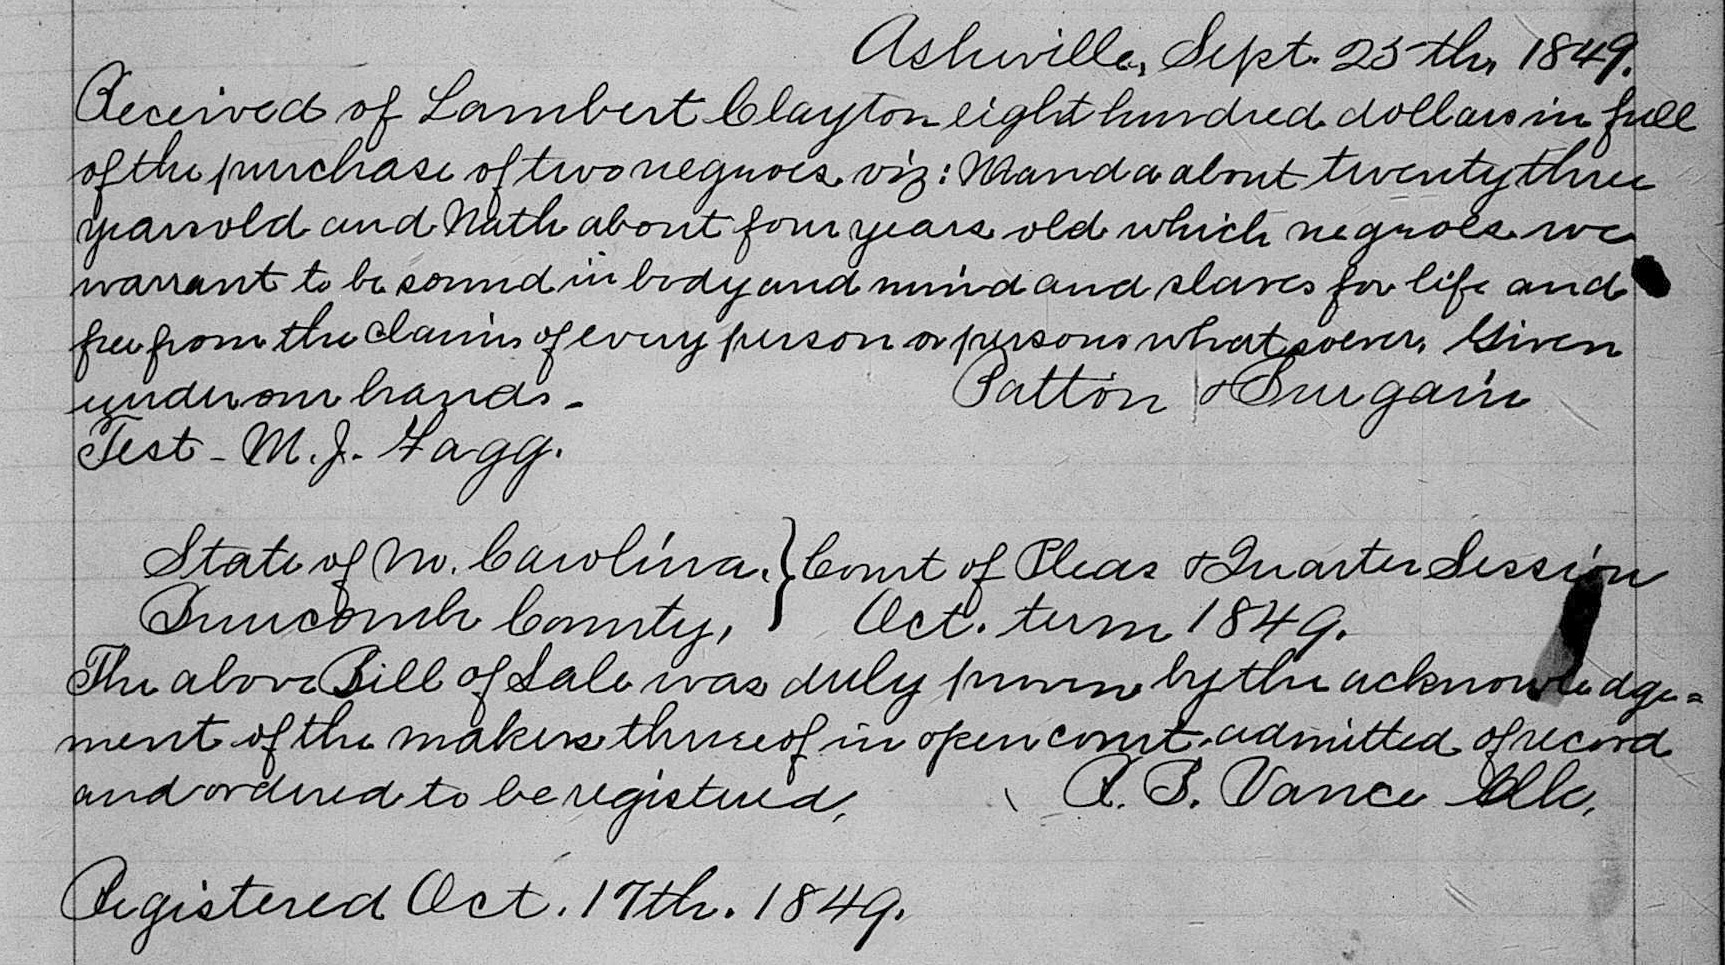 Asheville, Sept. 25th, 1849.
Received of Lambert Clayton eight hundred dollars in full
of the purchase of two negroes viz: Manda about twenty three
years old and Nath about four years old which negroes we
warrant to be sound in body and mind and slaves for life and
free from the claims of every person or persons whatsoever, Given
under our hands - Patton & Burgain
Test - M. J. Fagg.
State of No. Carolina, } Court of Pleas & Quarter Session
Buncomb County, } Oct. term 1849.
The above Bill of Sale was duly proven by the acknowledge=
ment of the makers thereof in open court, admitted of record
and ordered to be registered, R. B. Vance Clk,
Registered Oct. 17th. 1849.